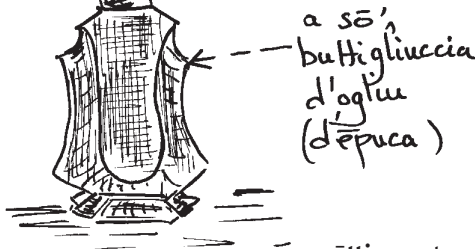 a sō'
buttigliuccia
d'ogliu
(d'ēpuca)